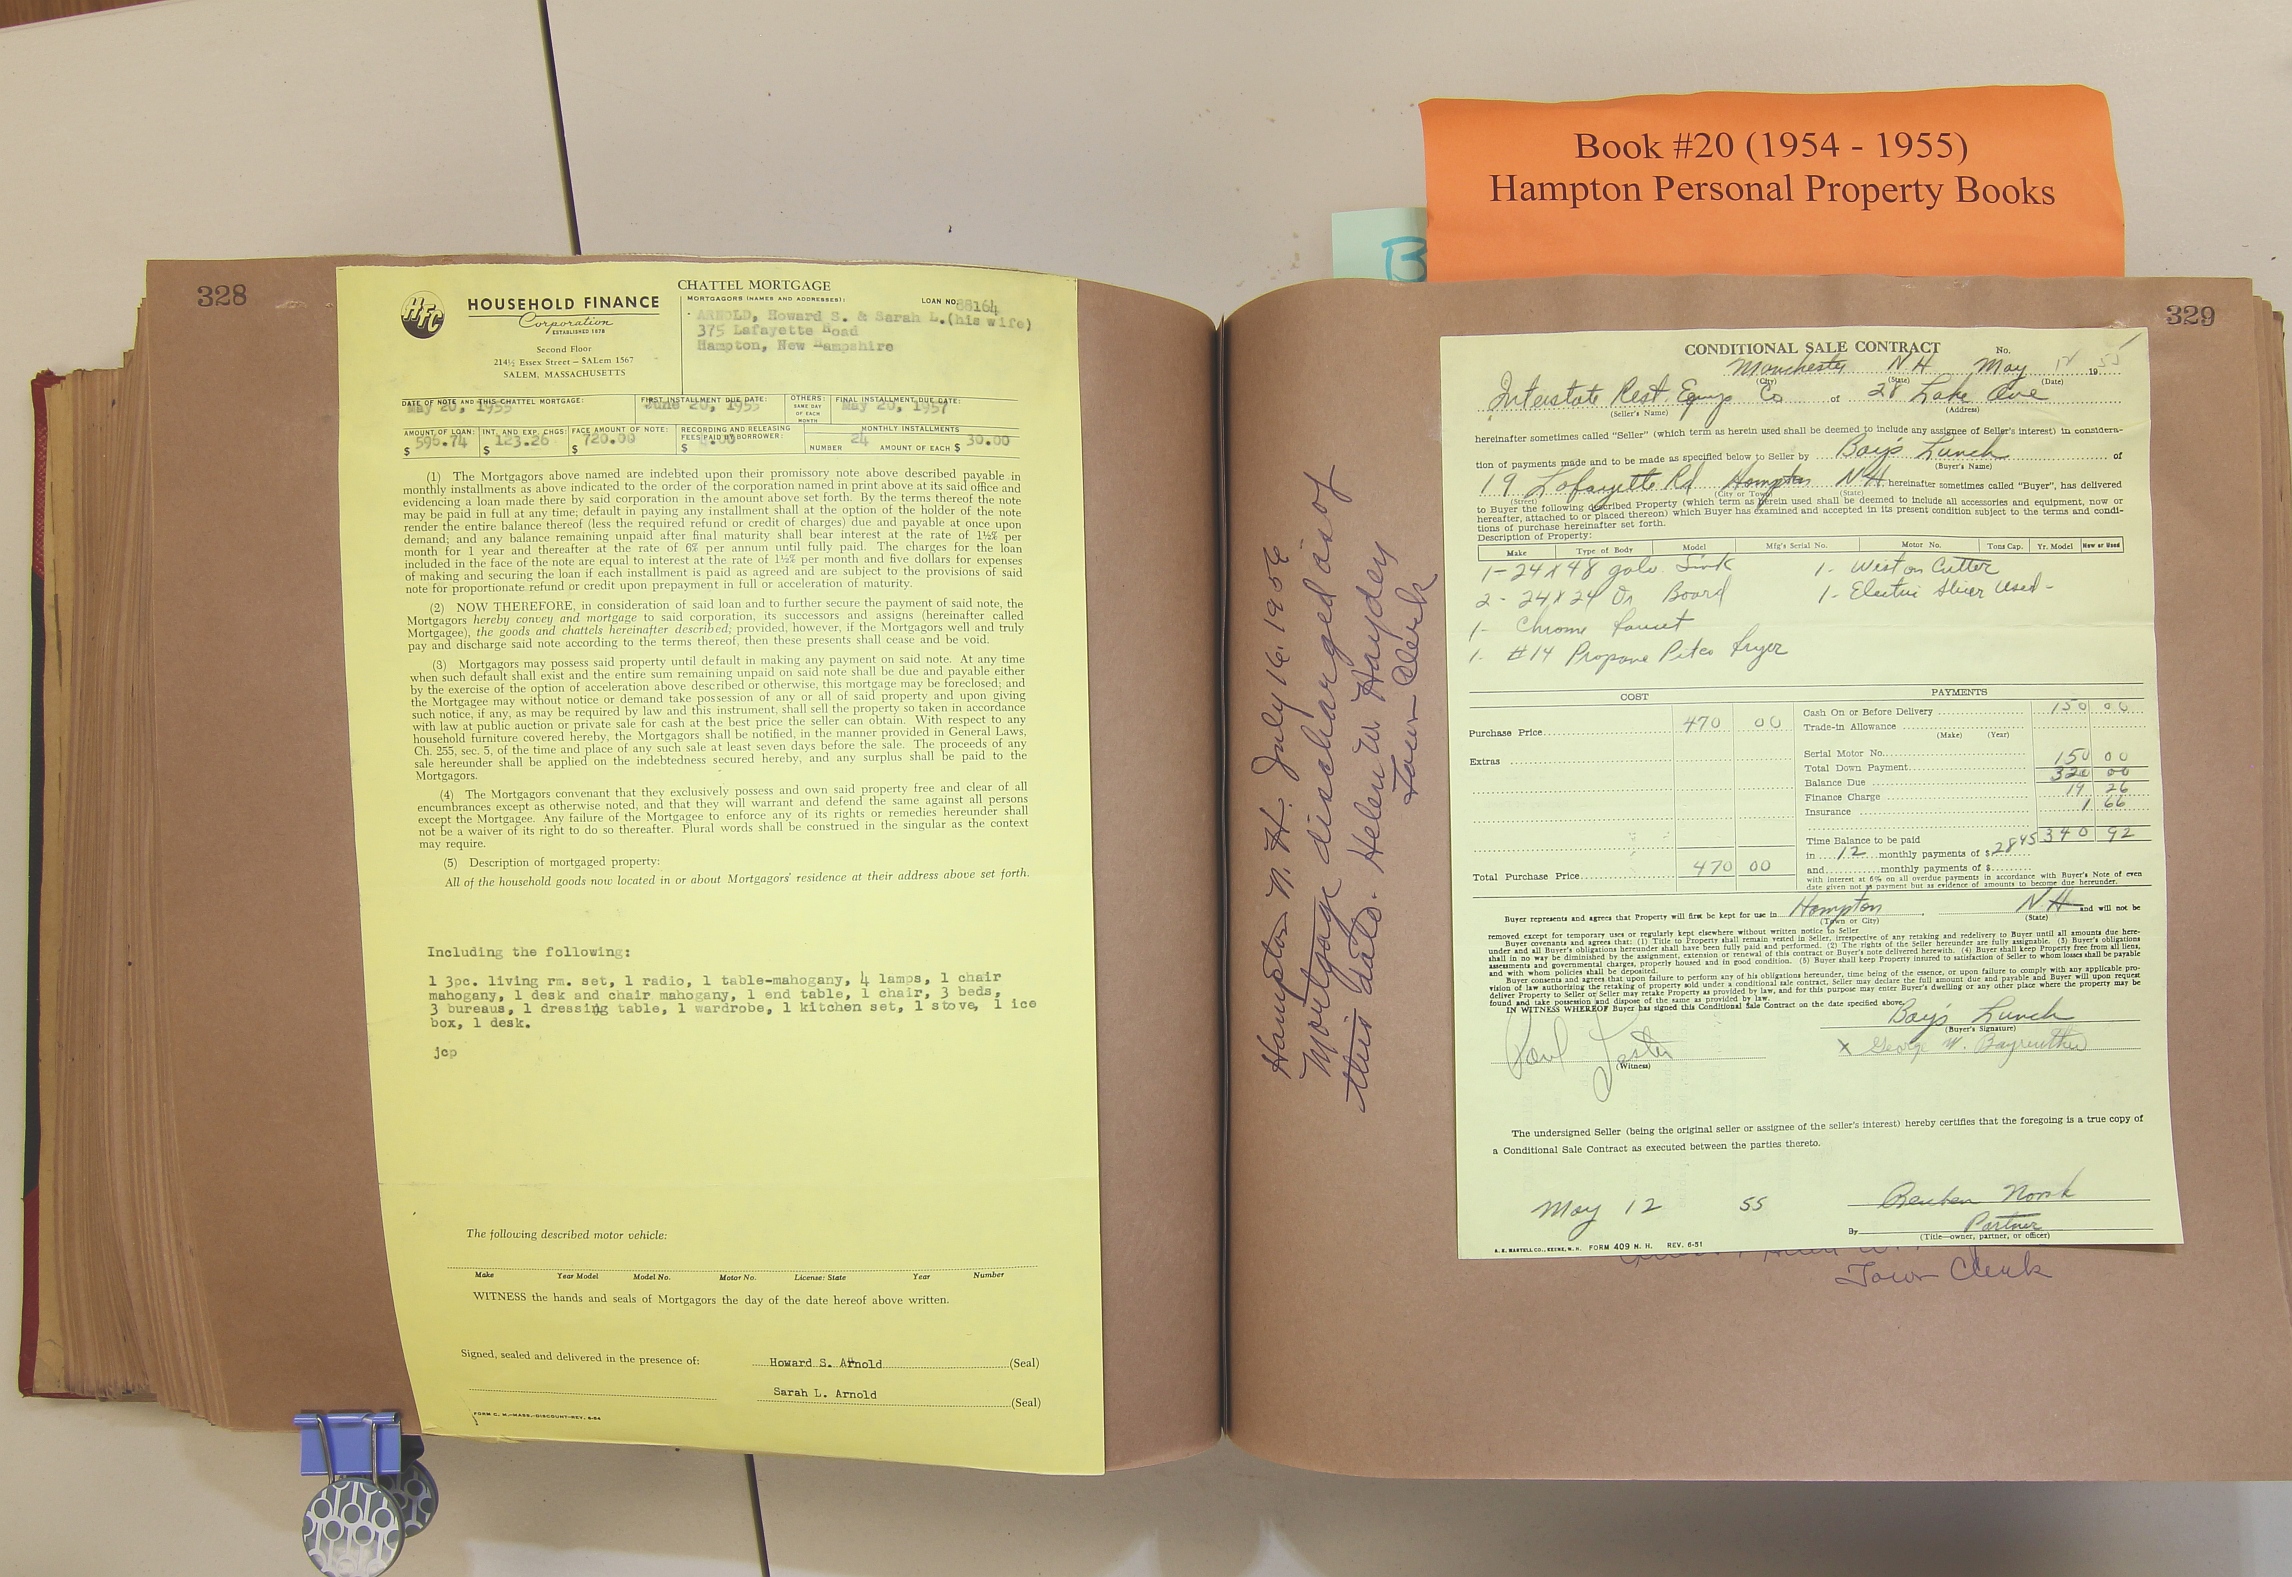 Book #20 (1954 - 1955)
Hampton Personal Property Books
B
328
HFC
HOUSEHOLD FINANCE
Corporation
ESTABLISHED 1878
Second Floor
214½ Essex Street – SALem 1567
SALEM, MASSACHUSETTS
CHATTEL MORTGAGE
MORTGAGORS (NAMES AND ADDRESSES):
LOAN NO. 88164
ARNOLD, Howard S. & Sarah L.(his wife)
375 Lafayette Road
Hampton, New Hampshire
DATE OF NOTE AND THIS CHATTEL MORTGAGE: May 20, 1955
FIRST INSTALLMENT DUE DATE: June 20, 1955
OTHERS: SAME DAY OF EACH MONTH
FINAL INSTALLMENT DUE DATE: May 20, 1957
AMOUNT OF LOAN: $ 596.74
INT. AND EXP. CHGS: $ 123.26
FACE AMOUNT OF NOTE: $ 720.00
RECORDING AND RELEASING FEES PAID BY BORROWER: $
MONTHLY INSTALLMENTS
NUMBER 24 AMOUNT OF EACH $ 30.00
(1) The Mortgagors above named are indebted upon their promissory note above described payable in
monthly installments as above indicated to the order of the corporation named in print above at its said office and
evidencing a loan made there by said corporation in the amount above set forth. By the terms thereof the note
may be paid in full at any time; default in paying any installment shall at the option of the holder of the note
render the entire balance thereof (less the required refund or credit of charges) due and payable at once upon
demand; and any balance remaining unpaid after final maturity shall bear interest at the rate of 1½% per
month for 1 year and thereafter at the rate of 6% per annum until fully paid. The charges for the loan
included in the face of the note are equal to interest at the rate of 1½% per month and five dollars for expenses
of making and securing the loan if each installment is paid as agreed and are subject to the provisions of said
note for proportionate refund or credit upon prepayment in full or acceleration of maturity.
(2) NOW THEREFORE, in consideration of said loan and to further secure the payment of said note, the
Mortgagors hereby convey and mortgage to said corporation, its successors and assigns (hereinafter called
Mortgagee), the goods and chattels hereinafter described; provided, however, if the Mortgagors well and truly
pay and discharge said note according to the terms thereof, then these presents shall cease and be void.
(3) Mortgagors may possess said property until default in making any payment on said note. At any time
when such default shall exist and the entire sum remaining unpaid on said note shall be due and payable either
by the exercise of the option of acceleration above described or otherwise, this mortgage may be foreclosed; and
the Mortgagee may without notice or demand take possession of any or all of said property and upon giving
such notice, if any, as may be required by law and this instrument, shall sell the property so taken in accordance
with law at public auction or private sale for cash at the best price the seller can obtain. With respect to any
household furniture covered hereby, the Mortgagors shall be notified, in the manner provided in General Laws,
Ch. 255, sec. 5, of the time and place of any such sale at least seven days before the sale. The proceeds of any
sale hereunder shall be applied on the indebtedness secured hereby, and any surplus shall be paid to the
Mortgagors.
(4) The Mortgagors convenant that they exclusively possess and own said property free and clear of all
encumbrances except as otherwise noted, and that they will warrant and defend the same against all persons
except the Mortgagee. Any failure of the Mortgagee to enforce any of its rights or remedies hereunder shall
not be a waiver of its right to do so thereafter. Plural words shall be construed in the singular as the context
may require.
(5) Description of mortgaged property:
All of the household goods now located in or about Mortgagors' residence at their address above set forth.
Including the following:
1 3pc. living rm. set, 1 radio, 1 table-mahogany, 4 lamps, 1 chair
mahogany, 1 desk and chair mahogany, 1 end table, 1 chair, 3 beds,
3 bureaus, 1 dressing table, 1 wardrobe, 1 kitchen set, 1 stove, 1 ice
box, 1 desk.
jcp
The following described motor vehicle:
Make Year Model Model No. Motor No. License: State Year Number
WITNESS the hands and seals of Mortgagors the day of the date hereof above written.
Signed, sealed and delivered in the presence of:
Howard S. Arnold (Seal)
Sarah L. Arnold (Seal)
FORM C. M.–MASS.–DISCOUNT–REV. 6-54
Hampton N. H. July 16, 1956
Mortgage discharged as of
this date. Helen W. Hayden
Town Clerk
329
CONDITIONAL SALE CONTRACT No.
Manchester N H May 12 1955
(City) (State) (Date)
Interstate Rest. Equip Co of 28 Lake Ave
(Seller's Name) (Address)
hereinafter sometimes called "Seller" (which term as herein used shall be deemed to include any assignee of Seller's interest) in considera-
tion of payments made and to be made as specified below to Seller by Bay's Lunch of
(Buyer's Name)
19 Lafayette Rd Hampton N H hereinafter sometimes called "Buyer", has delivered
(Street) (City or Town) (State)
to Buyer the following described Property (which term as herein used shall be deemed to include all accessories and equipment, now or
hereafter, attached to or placed thereon) which Buyer has examined and accepted in its present condition subject to the terms and condi-
tions of purchase hereinafter set forth.
Description of Property:
Make Type of Body Model Mfg's Serial No. Motor No. Tons Cap. Yr. Model New or Used
1- 24 X 48 galv. Sink 1- Weston Cutter
2- 24 X 24 Dr Board 1- Electric Slicer Used-
1- Chrome faucet
1- #14 Propane Pitco fryer
COST
Purchase Price 470 00
Extras
Total Purchase Price 470 00
PAYMENTS
Cash On or Before Delivery 150 00
Trade-in Allowance
(Make) (Year)
Serial Motor No.
Total Down Payment 150 00
Balance Due 320 00
Finance Charge 19 26
Insurance 1 66
Time Balance to be paid 340 92
in 12 monthly payments of $ 28 45
and monthly payments of $
with interest at 6% on all overdue payments in accordance with Buyer's Note of even
date given not as payment but as evidence of amounts to become due hereunder.
Buyer represents and agrees that Property will first be kept for use in Hampton N H and will not be
(Town or City) (State)
removed except for temporary uses or regularly kept elsewhere without written notice to Seller
Buyer covenants and agrees that: (1) Title to Property shall remain vested in Seller, irrespective of any retaking and redelivery to Buyer until all amounts due here-
under and all Buyer's obligations hereunder shall have been fully paid and performed. (2) The rights of the Seller hereunder are fully assignable. (3) Buyer's obligations
shall in no way be diminished by the assignment, extension or renewal of this contract or Buyer's note delivered herewith. (4) Buyer shall keep Property free from all liens,
assessments and governmental charges, properly housed and in good condition. (5) Buyer shall keep Property insured to satisfaction of Seller to whom losses shall be payable
and with whom policies shall be deposited.
Buyer consents and agrees that upon failure to perform any of his obligations hereunder, time being of the essence, or upon failure to comply with any applicable pro-
vision of law authorizing the retaking of property sold under a conditional sale contract, Seller may declare the full amount due and payable and Buyer will upon request
deliver Property to Seller or Seller may retake Property as provided by law, and for this purpose may enter Buyer's dwelling or any other place where the property may be
found and take possession and dispose of the same as provided by law.
IN WITNESS WHEREOF Buyer has signed this Conditional Sale Contract on the date specified above.
Bay's Lunch
(Buyer's Signature)
Paul
(Witness)
x George W. Bayreuther
The undersigned Seller (being the original seller or assignee of the seller's interest) hereby certifies that the foregoing is a true copy of
a Conditional Sale Contract as executed between the parties thereto.
May 12 55
Reuben
By Partner
(Title—owner, partner, or officer)
FORM 409 N. H. REV. 6-51
Town Clerk